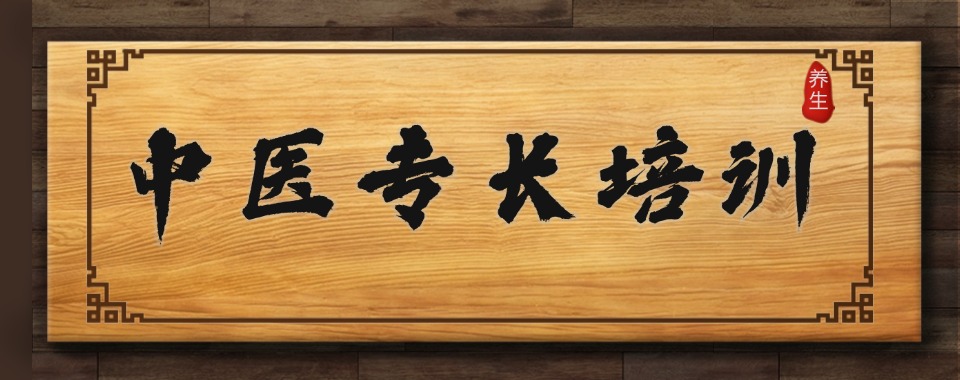 中医专长培训
养生